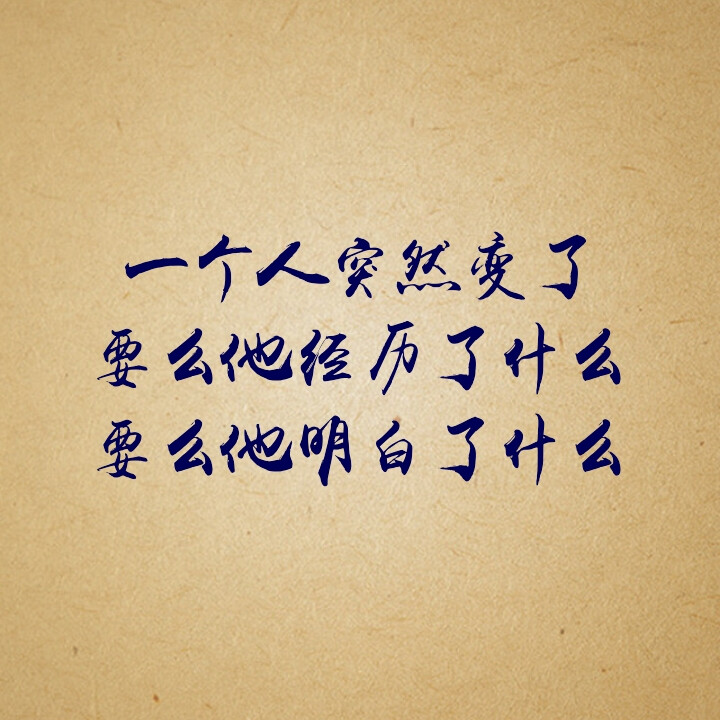 一个人突然变了
要么他经历了什么
要么他明白了什么